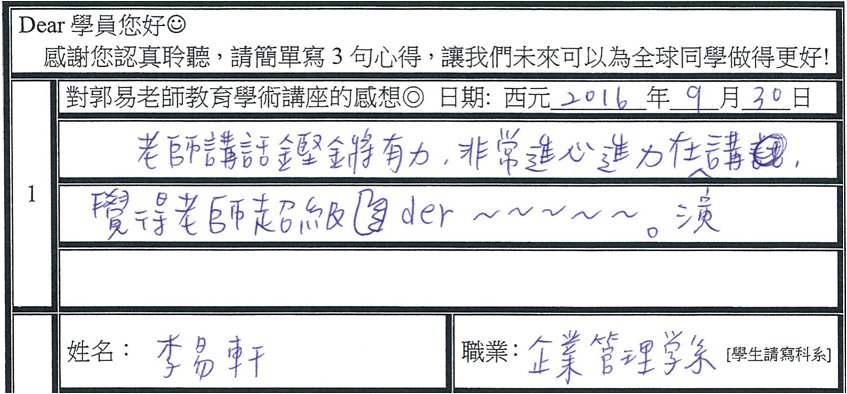 Dear 學員您好☺
感謝您認真聆聽，請簡單寫 3 句心得，讓我們未來可以為全球同學做得更好!
1
對郭易老師教育學術講座的感想◎ 日期: 西元 2016 年 9 月 30 日
老師講話鏗鏘有力，非常進心進力在講演，
覺得老師超級 der ～～～～～。
姓名： 李易軒
職業： 企業管理学系 [學生請寫科系]